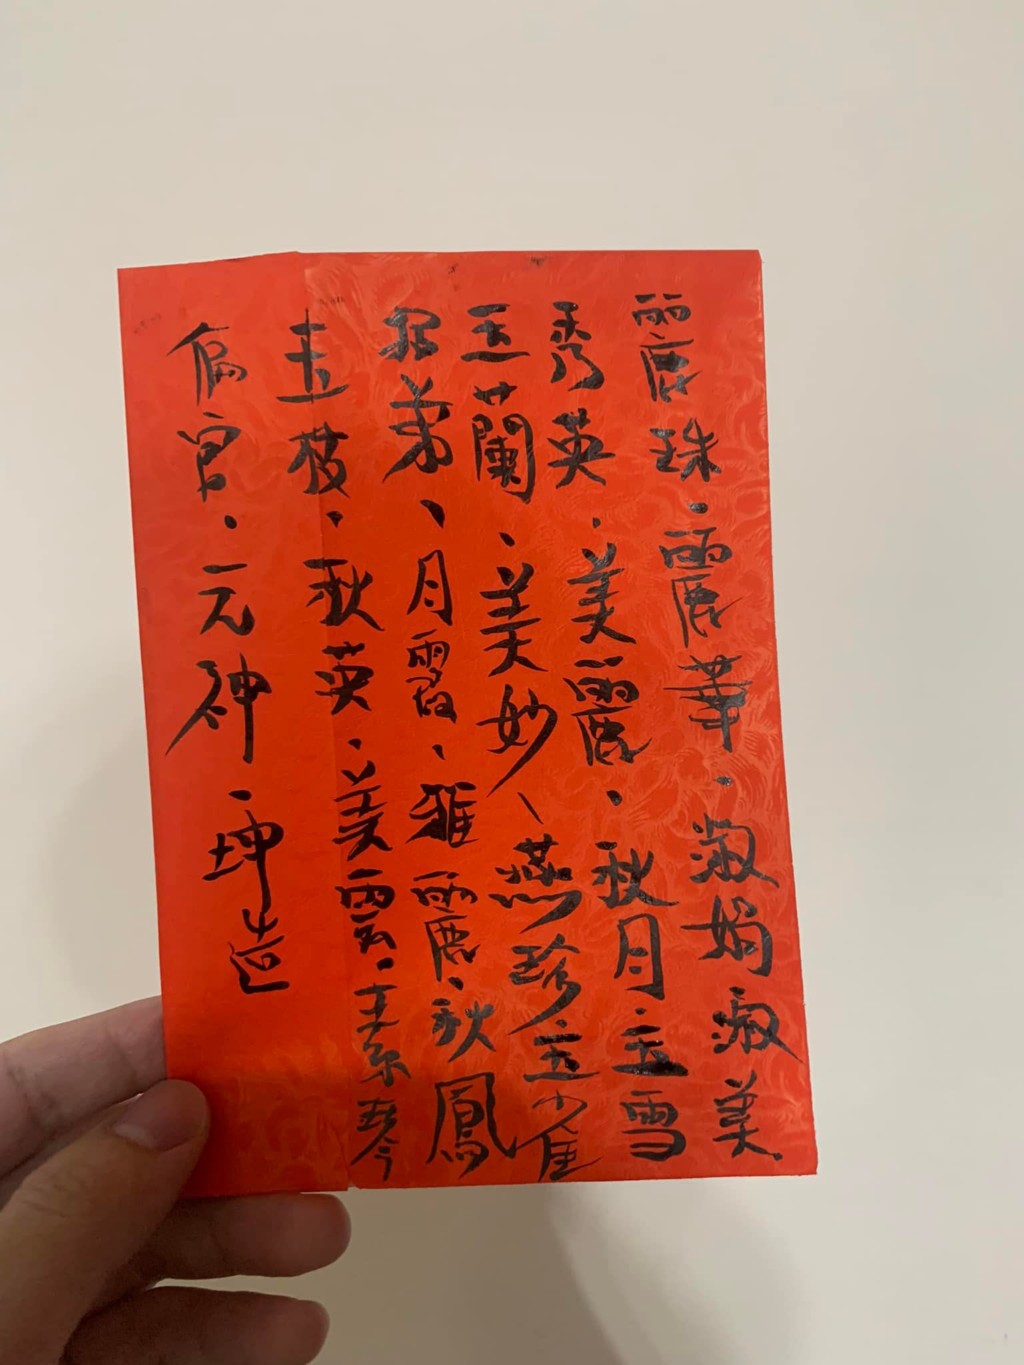 麗珠、麗華、淑娟淑美
秀英、美麗、秋月玉雪
玉蘭、美妙、燕珍玉
弟、月霞、雅麗、秋鳳
玉枝、秋英、美雲、素琴
偏官、元神、坤造